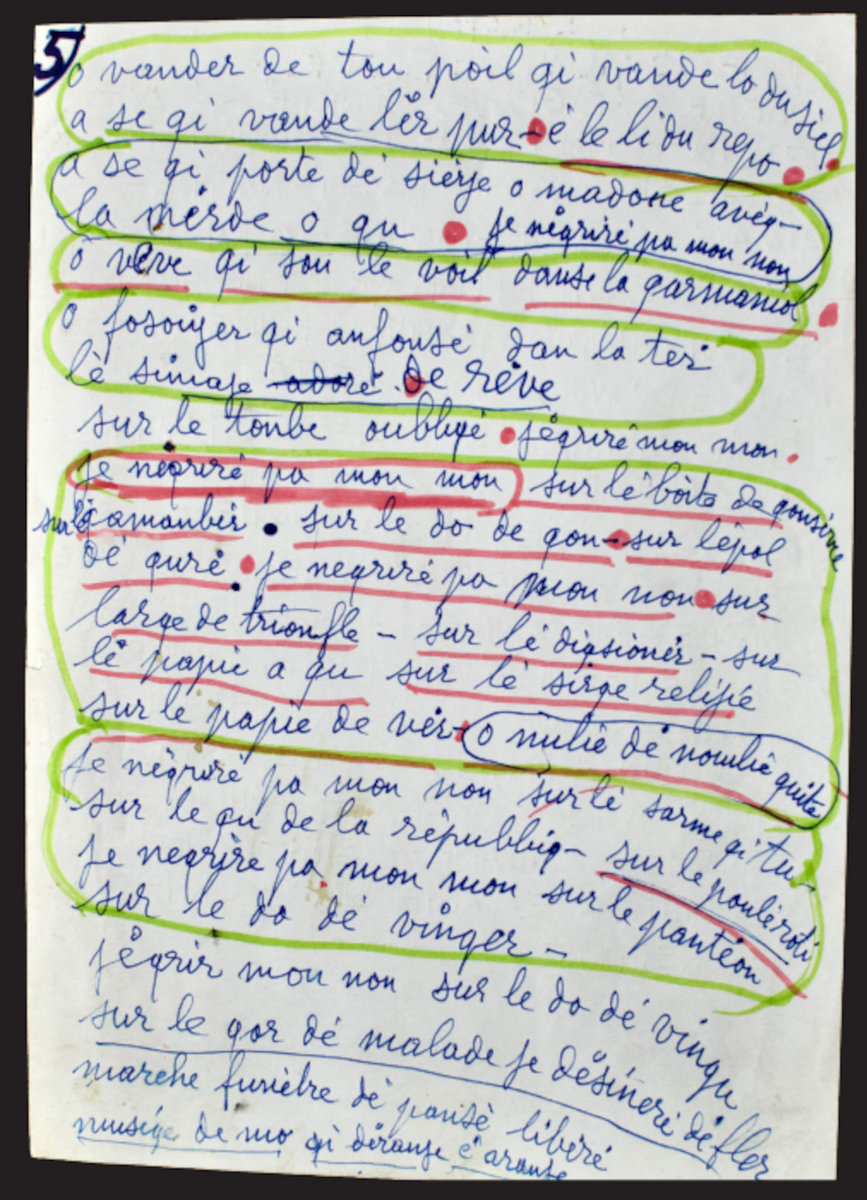 5
o vander de tou poil qi vande lo du siel
a se qi vande lêr pur - é le li du repo
a se qi porte dé sierje o madone avéq -
la mérde o qu je négriré pa mon non
ô vêve qi sou le voil danse la qarmaniol
o fosoiyer qi anfousé dan la ter
lè simaje adoré de rêve
sur le tonbe oubliyé jéqriré mon mon.
je néqriré pa mon mon sur lé boite de qonsérve
sur lé qamanbér . sur le do de qon - sur lépol
dé quré . je neqriré pa mon non sur
larqe de trionfle - sur lé diqsionér - sur
lé papié a qu sur lé sirqe relijié
sur le papie de vér - o milié de nonbië quite
je néqriré pa mon non sur lé sarme qi tu -
sur le qu de la républiq - sur le poulé roti
je neqrire pa mon mon sur le pantéon
sur le do dé vinqer -
jéqrir mon non sur le do dé vinqu
sur le qor dé malade je désineré dé fler
marche funiébre dé pansé libéré
musiqe de mo qi déranje é aranje